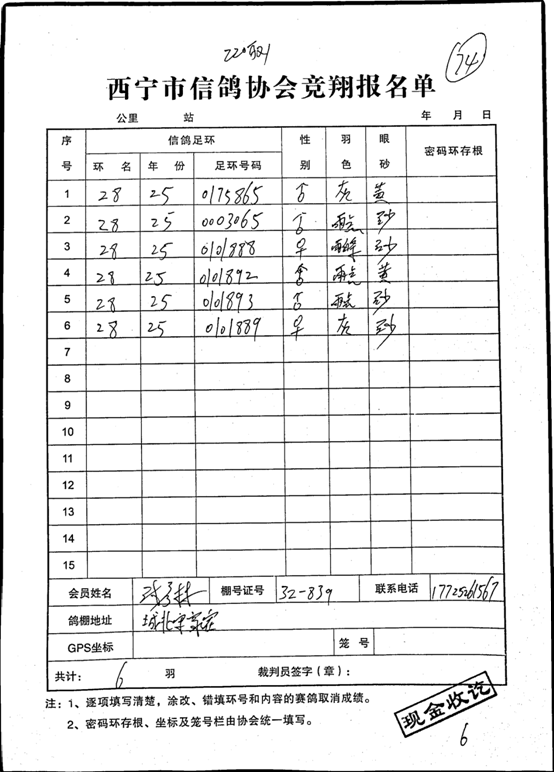 74
西宁市信鸽协会竞翔报名单
公里 站 年 月 日
序号 信鸽足环 性别 羽色 眼砂 密码环存根
环名 年份 足环号码
1 28 25 0175865 ♂ 灰 黄
2 28 25 0003065 ♂ 雨点 砂
3 28 25 0101888 ♀ 砂
4 28 25 0101892 雨点 黄
5 28 25 0101893 ♂ 雨点 砂
6 28 25 0101889 ♀ 灰 砂
7
8
9
10
11
12
13
14
15
会员姓名 棚号证号 32-839 联系电话 17725261567
鸽棚地址 城北
GPS坐标 笼号
共计: 6 羽 裁判员签字(章):
注:1、逐项填写清楚,涂改、错填环号和内容的赛鸽取消成绩。
2、密码环存根、坐标及笼号栏由协会统一填写。
现金收讫
6